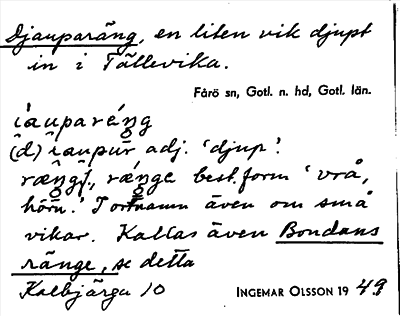 Djauparäng, en liten vik djupt
in i Tällevika.
Fårö sn, Gotl. n. hd, Gotl. län.
i̯auparéŋg
(d)i̯aupur adj. ‘djup’.
ræŋgf., ræŋge best. form ‘vrå,
hörn.’ I ortnamn även om små
vikar. Kallas även Bondans
ränge, se detta
Kalbjärga 10
INGEMAR OLSSON 1949